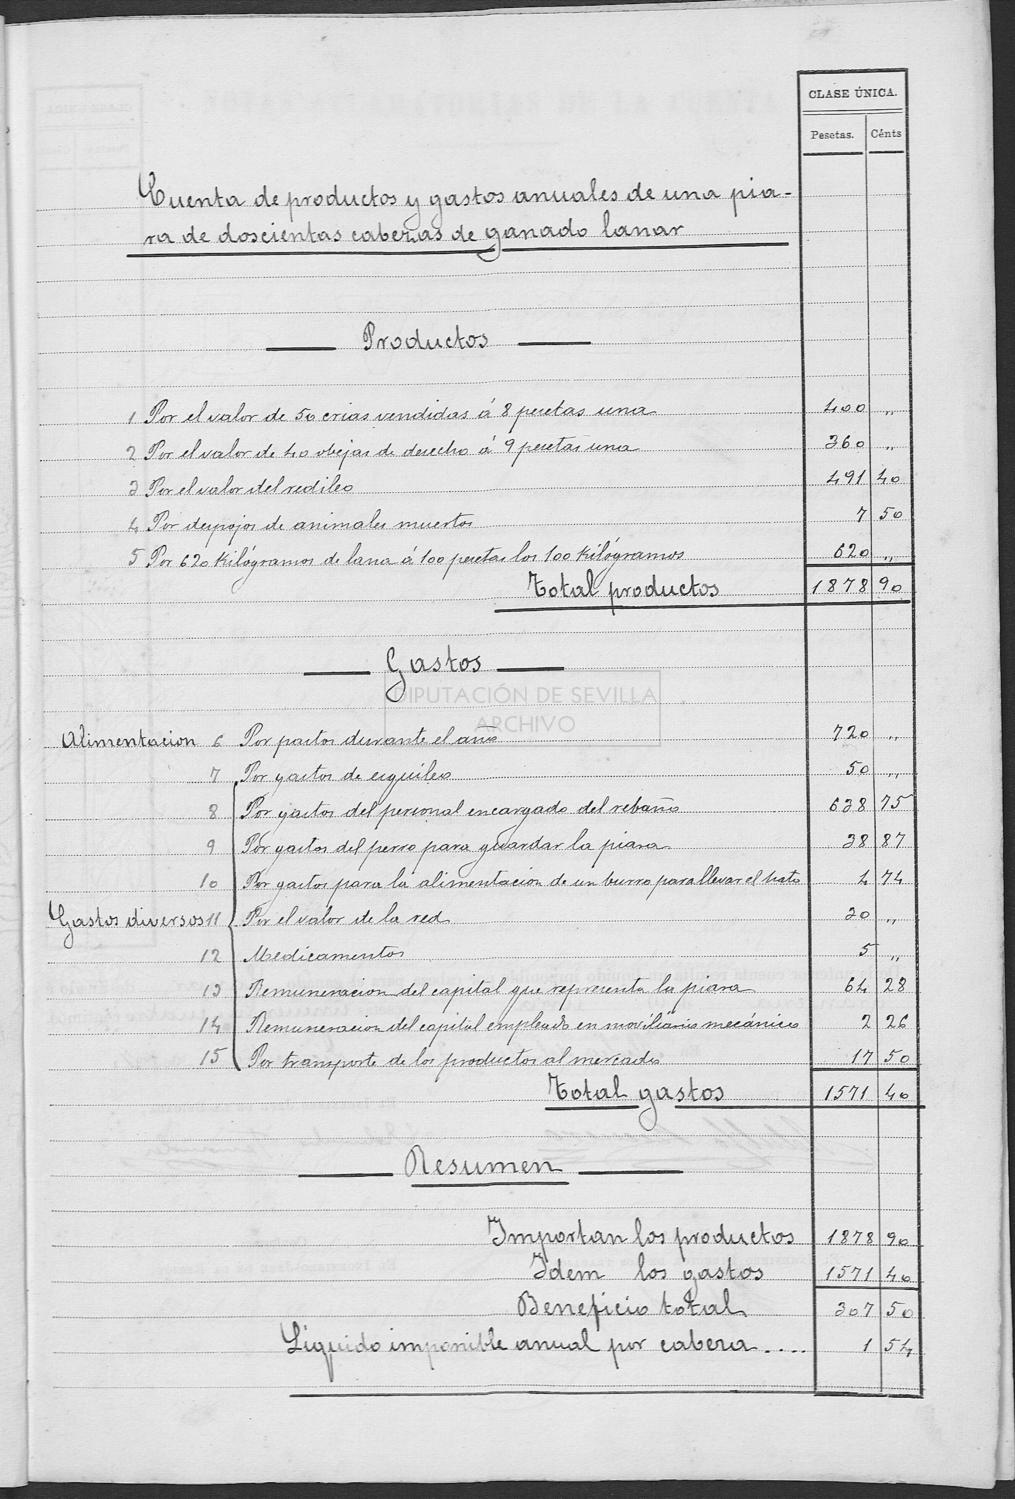 CLASE ÚNICA.
Pesetas. Cénts
Cuenta de productos y gastos anuales de una pia-
ra de doscientas cabezas de ganado lanar
Productos
1 Por el valor de 50 crias vendidas á 8 pesetas una 400 "
2 Por el valor de 40 obejas de desecho á 9 pesetas una 360 "
3 Por el valor del redileo 491 40
4 Por despojos de animales muertos 7 50
5 Por 620 Kilógramos de lana á 100 pesetas los 100 Kilógramos 620 "
Total productos 1878 90
Gastos
DIPUTACIÓN DE SEVILLA
ARCHIVO
Alimentacion 6 Por pastos durante el año 720 "
7 Por gastos de esquileo 50 "
8 Por gastos del personal encargado del rebaño 638 75
9 Por gastos del perro para guardar la piara 38 87
10 Por gastos para la alimentacion de un burro para llevar el hato 4 74
Gastos diversos 11 Por el valor de la red 30 "
12 Medicamentos 5 "
13 Remuneracion del capital que representa la piara 64 28
14 Remuneracion del capital empleado en moviliario mecánico 2 26
15 Por transporte de los productos al mercado 17 50
Total gastos 1571 40
Resumen
Importan los productos 1878 90
Idem los gastos 1571 40
Beneficio total 307 50
Líquido imponible anual por cabeza .... 1 54